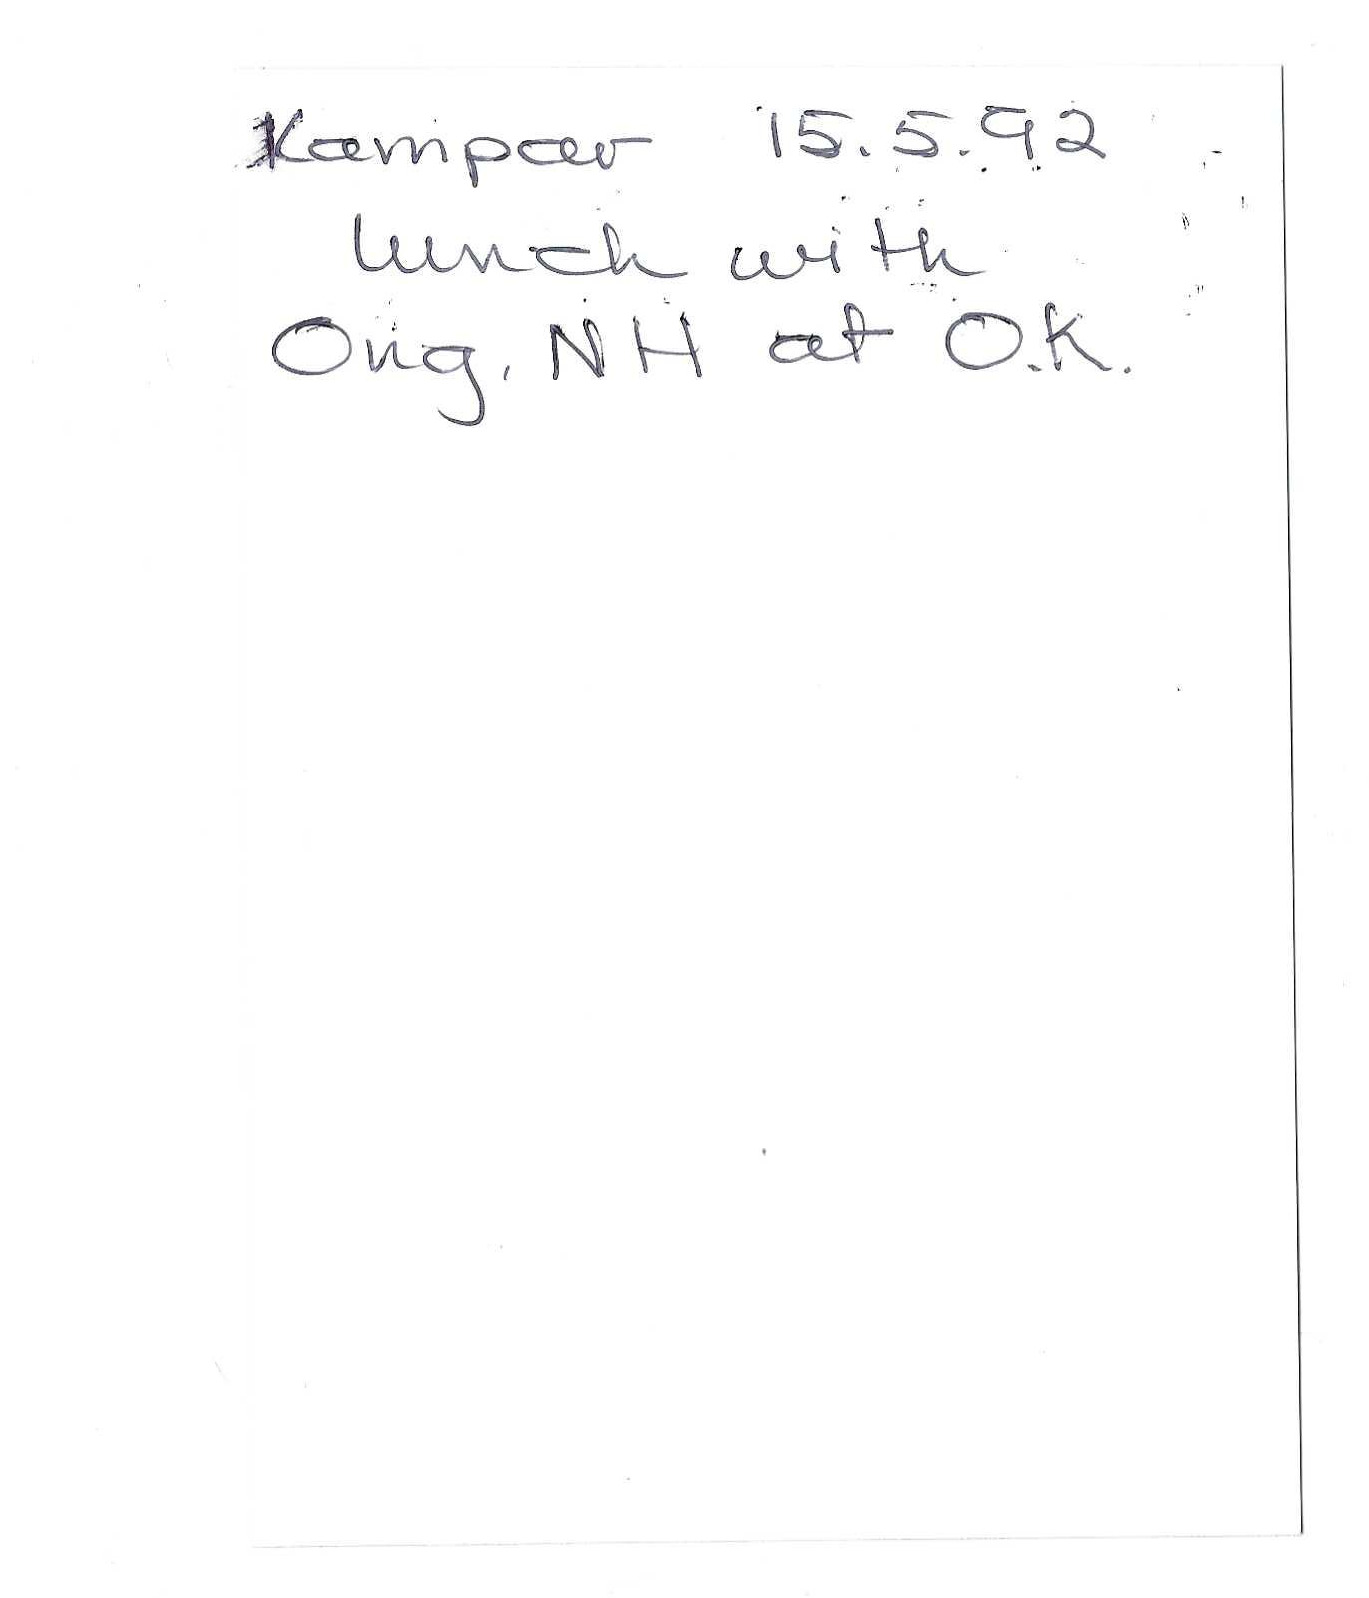 Kampar 15.5.92
lunch with
Ong, NH at O.K.